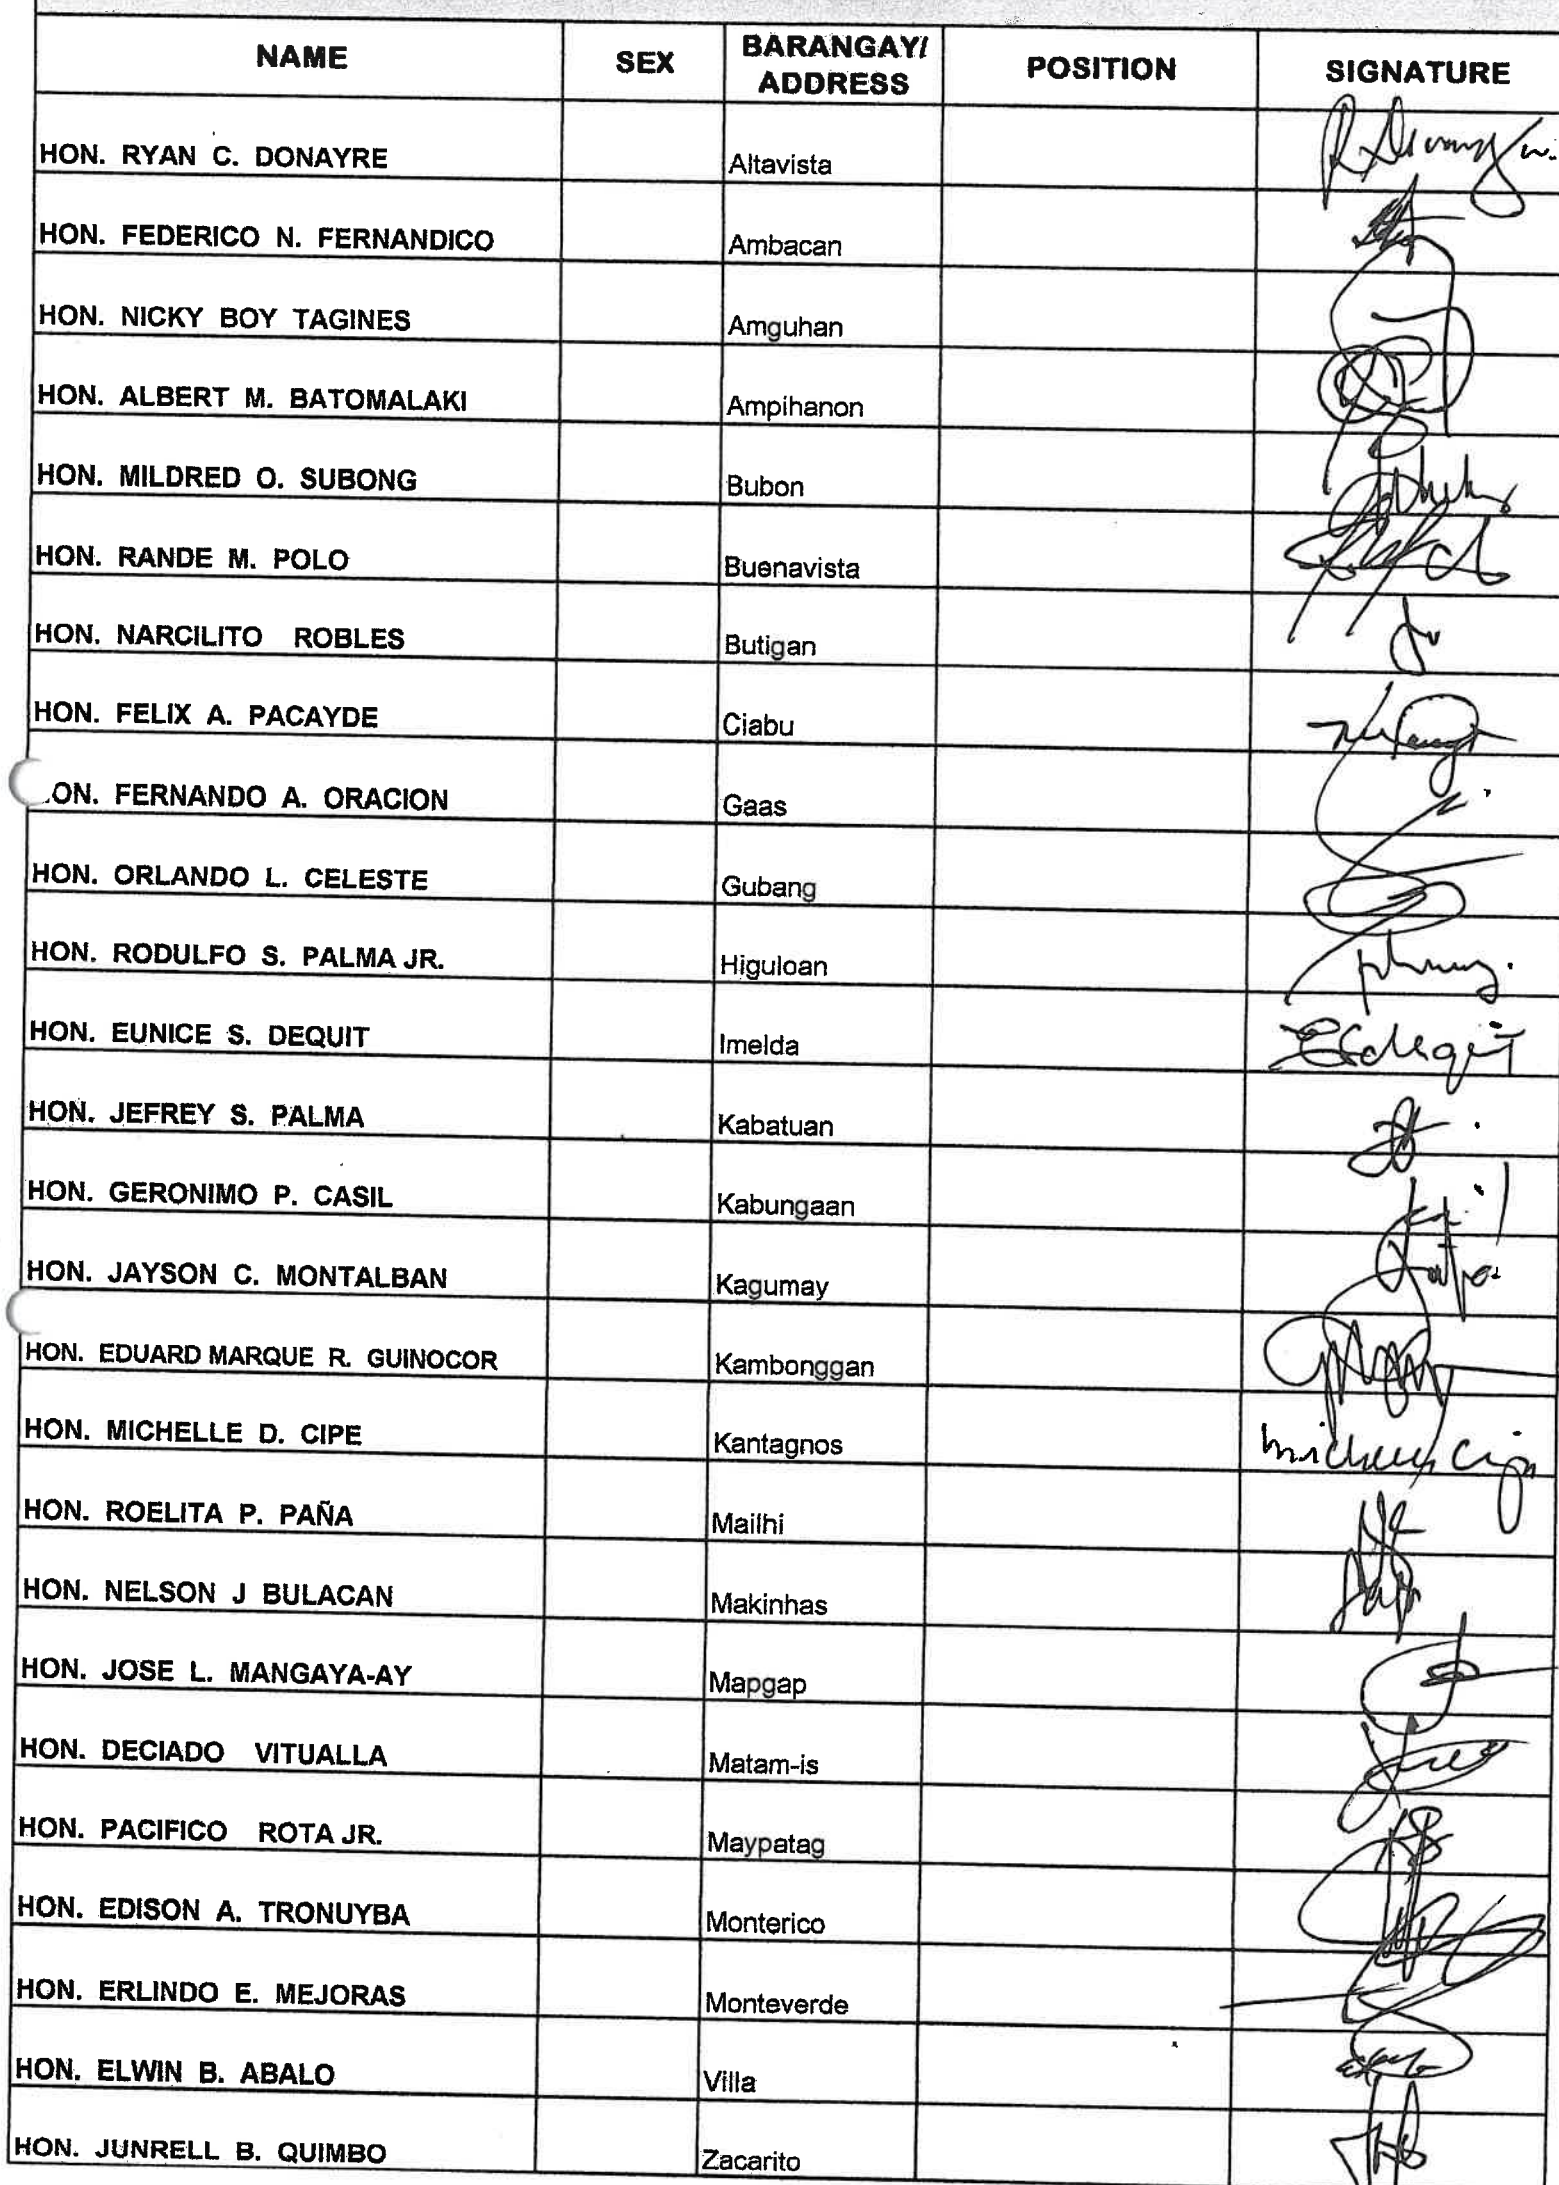 NAME SEX BARANGAY/ POSITION SIGNATURE
ADDRESS
HON. RYAN C. DONAYRE Altavista
HON. FEDERICO N. FERNANDICO Ambacan
HON. NICKY BOY TAGINES Amguhan
HON. ALBERT M. BATOMALAKI Ampihanon
HON. MILDRED O. SUBONG Bubon
HON. RANDE M. POLO Buenavista
HON. NARCILITO ROBLES Butigan
HON. FELIX A. PACAYDE Ciabu
ON. FERNANDO A. ORACION Gaas
HON. ORLANDO L. CELESTE Gubang
HON. RODULFO S. PALMA JR. Higuloan
HON. EUNICE S. DEQUIT Imelda ESdequit
HON. JEFREY S. PALMA Kabatuan
HON. GERONIMO P. CASIL Kabungaan
HON. JAYSON C. MONTALBAN Kagumay
HON. EDUARD MARQUE R. GUINOCOR Kambonggan
HON. MICHELLE D. CIPE Kantagnos
HON. ROELITA P. PAÑA Mailhi
HON. NELSON J BULACAN Makinhas
HON. JOSE L. MANGAYA-AY Mapgap
HON. DECIADO VITUALLA Matam-is
HON. PACIFICO ROTA JR. Maypatag
HON. EDISON A. TRONUYBA Monterico
HON. ERLINDO E. MEJORAS Monteverde
HON. ELWIN B. ABALO Villa
HON. JUNRELL B. QUIMBO Zacarito